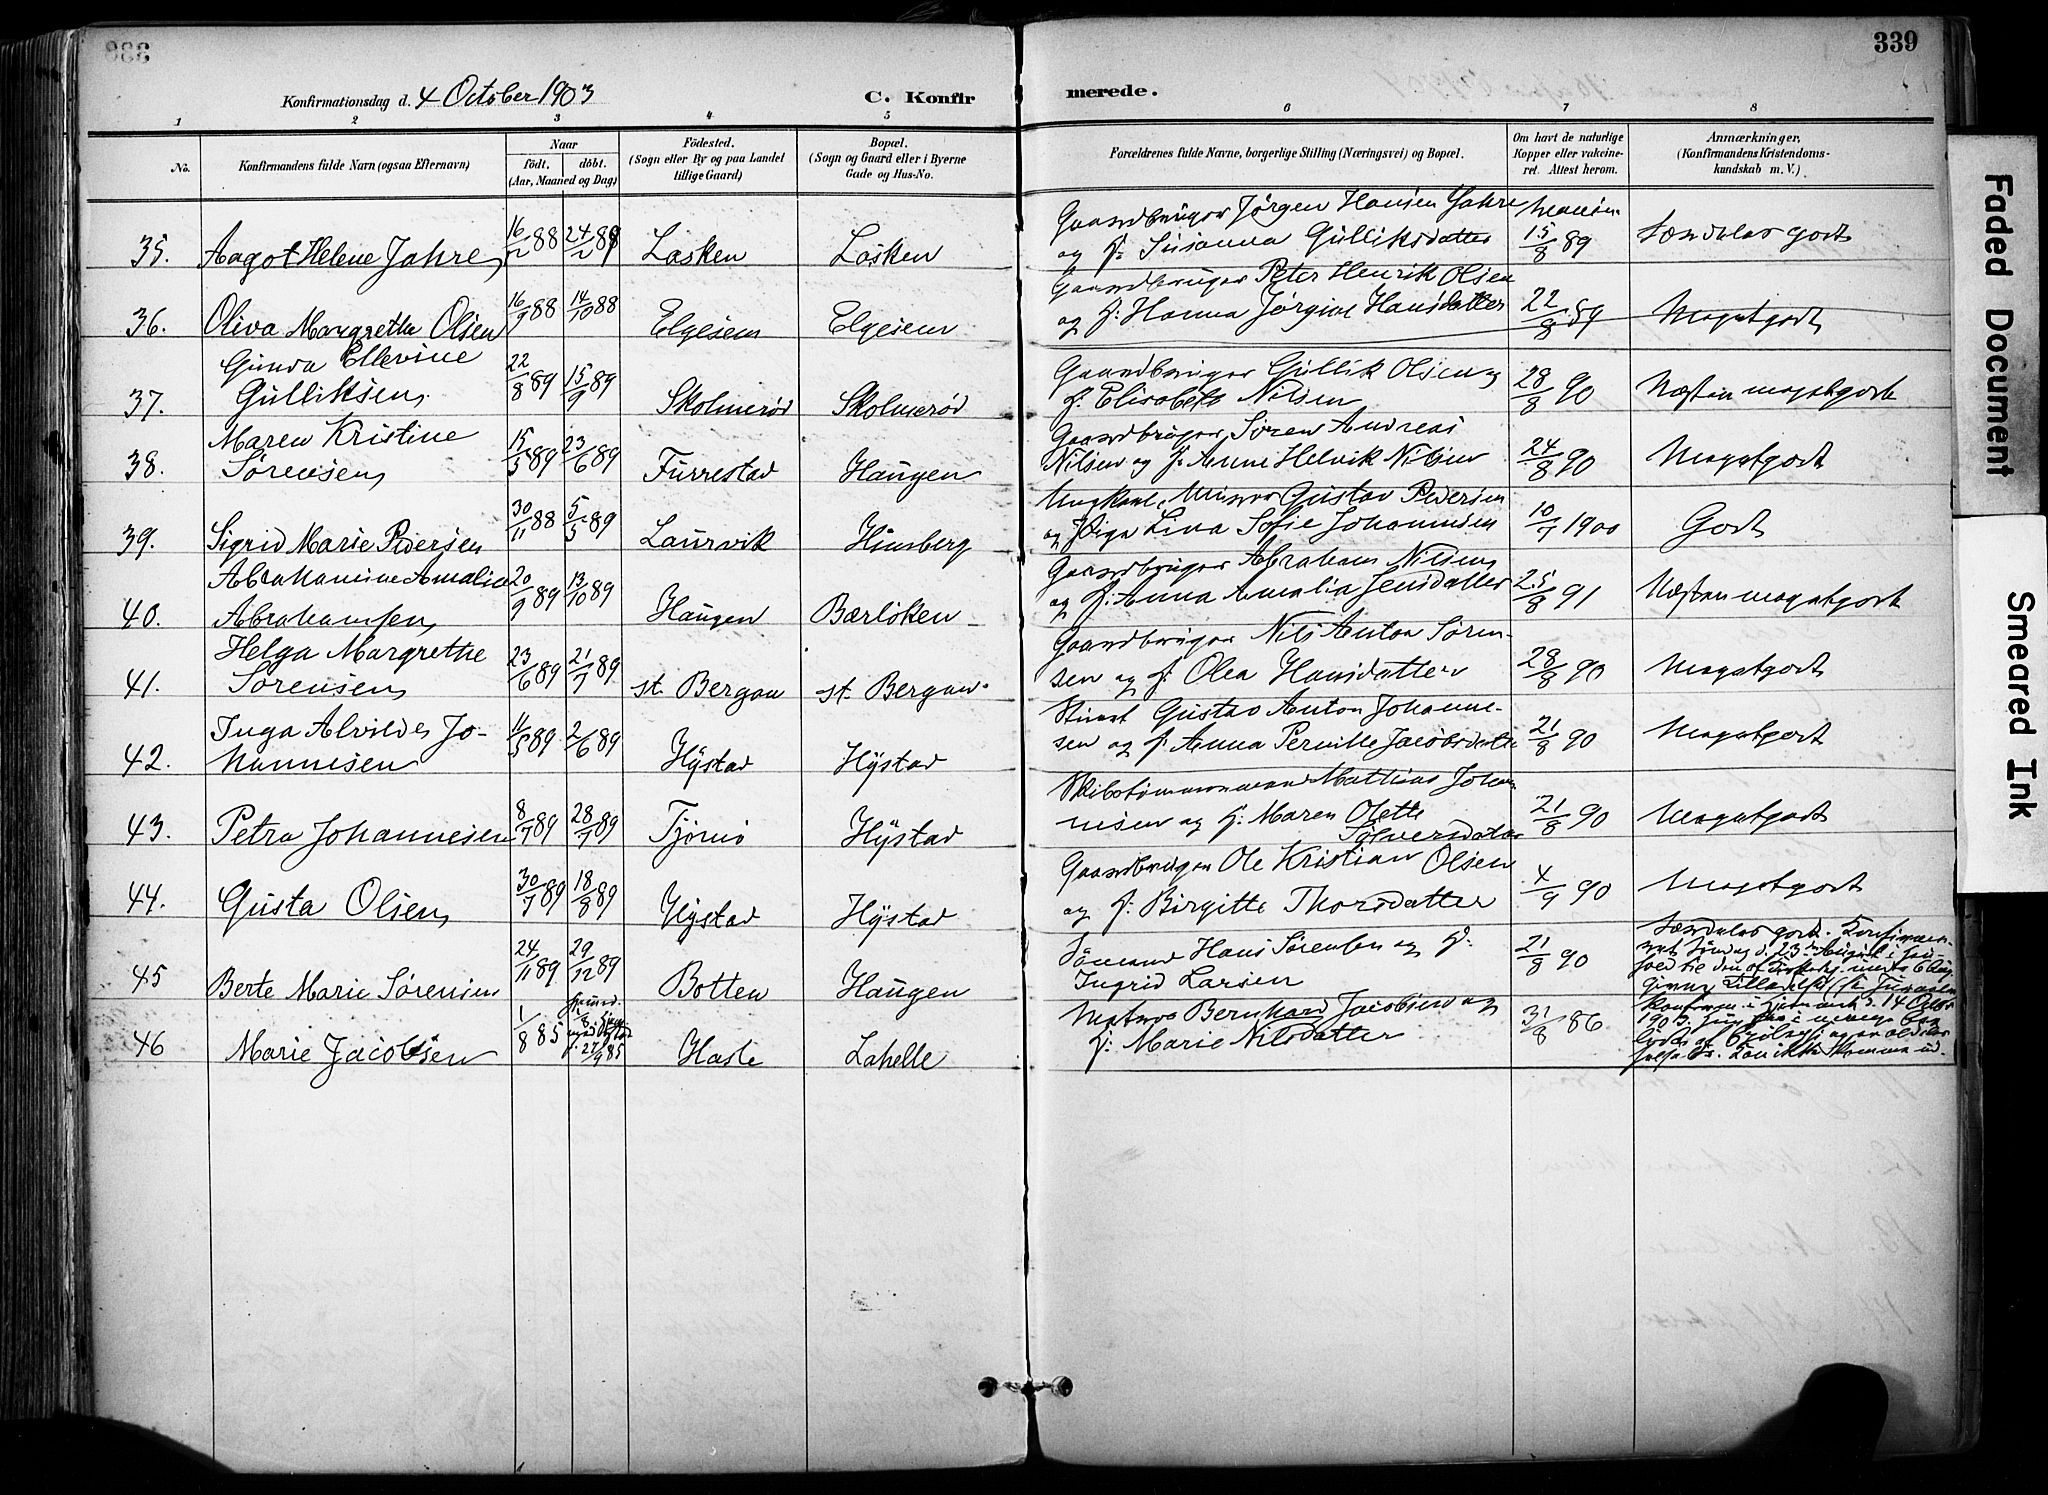 339
Konfirmationsdag d. 4 October 1903 C. Konfirmerede.
1 2 3 4 5 6 7 8
No. Konfirmandens fulde Navn (ogsaa Efternavn) Naar født. døbt. (Aar, Maaned og Dag) Fødested. (Sogn eller By og paa Landet tillige Gaard) Bopæl. (Sogn og Gaard eller i Byerne Gade og Hus-No. Forældrenes fulde Navne, borgerlige Stilling (Næringsvei) og Bopæl. Om havt de naturlige Kopper eller vakcineret. Attest herom. Anmærkninger, (Konfirmandens Kristendomskundskab m. V.)
35. Aagot Helene Jahre 16/2 88 24/2 89 Løsken Løsken Gaardbruger Jørgen Hansen Jahre
og f: Susanna Gulliksdatter 15/8 89 Særdeles godt
36. Oliva Margrethe Olsen 16/9 88 14/10 88 Elgesem Elgesem Gaardbruger Peter Henrik Olsen
og f: Hanna Jørgine Hansdatter 22/8 89 Megetgodt
37. Gunda Ellevine
Gulliksen 22/8 89 15/9 89 Skolmerød Skolmerød Gaardbruger Gullik Olsen og
f. Elisabeth Nilsen 28/8 90 Næsten megetgodt
38. Maren Kristine
Sørensen 15/5 89 23/6 89 Furrestad Haugen Gaardbruger Søren Andreas
Nilsen og f. Anne Helvik Nilsen 24/8 90 Megetgodt
39. Sigrid Marie Pedersen 30/11 88 5/5 89 Laurvik Hinsberg Ungkarl, Gustav Pedersen
og Pige Lina Sofie Johannesen 10/7 1900 Godt
40. Abrahamine Amalie
Abrahamsen 20/9 89 13/10 89 Haugen Bærløken Gaardbruger Abraham Nilsen
og f. Anna Amalia Jensdatter 25/8 91 Næsten megetgodt
41. Helga Margrethe
Sørensen 23/6 89 21/7 89 st. Bergan st. Bergan. Gaardbruger Nils Anton Sørensen
og f. Olea Hansdatter 28/8 90 Megetgodt
42. Inga Alvilde Johannesen
11/5 89 2/6 89 Hystad Hystad Gustav Anton Johannesen
og f. Anna Pernille Jacobsdatter 21/8 90 Megetgodt
43. Petra Johannesen 8/7 89 28/7 89 Tjømø Hystad Skibstømmermand Mathias Johannesen
og f: Maren Olette
Sølversdatter 21/8 90 Megetgodt
44. Gusta Olsen 30/7 89 18/8 89 Hystad Hystad Gaardbruger Ole Kristian Olsen
og f: Birgitte Thorsdatter 4/9 90 Megetgodt
45 Berte Marie Sørensen 24/11 89 29/12 89 Botten Haugen Sømand Hans Sørensen og f:
Ingrid Larsen 21/8 90 Særdeles godt.
46 Marie Jacobsen 1/8 85 27/9 85 Hasle Lahelle Matros Bernhard Jacobsen og
f: Marie Nilsdatter 31/8 86 14 Octbr
1903
Faded Document
Smeared Ink